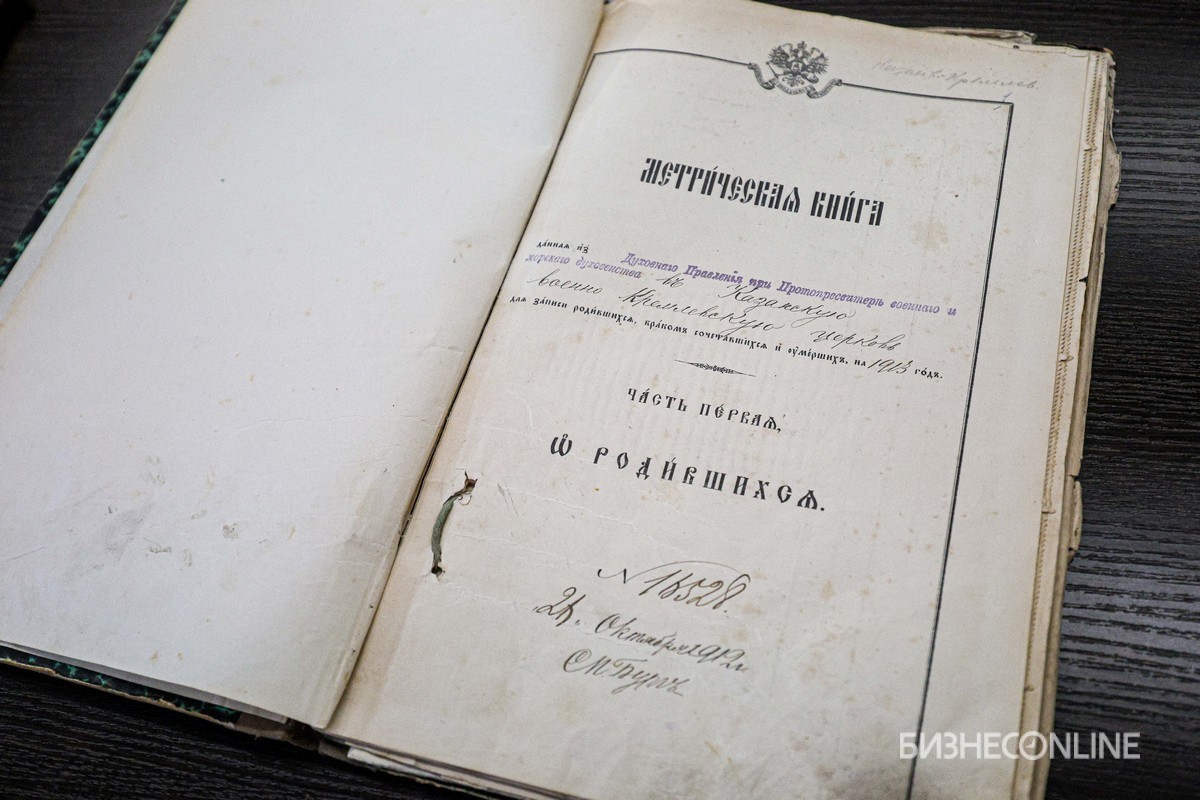 МЕТРИ́ЧЕСКАЯ КНИ́ГА
да́нная и҆з̾ Духовнаго Правленія при Протопресвитерѣ военнаго и
морскаго духовенства въ Казанскую
военно Кремлевскую церковь
для за́писи роди́вшихся, бра́комъ сочета́вшихся и҆ оу҆ме́ршихъ, на 1913 го́дъ.
ЧА́СТЬ ПЕ́РВАЯ,
Ѡ҆ РОДИ́ВШИХСЯ.
N 16528.
Октября 1912 г.
СПБургъ
БИЗНЕС ONLINE